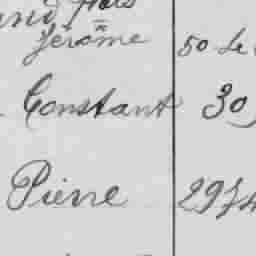 Jérôme 50 Le
Constant 30
Pierre 29